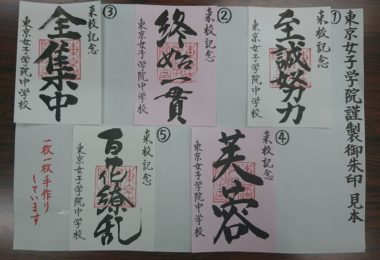 東京女子学院謹製御朱印 見本
①
来校記念
至誠努力
東京女子学院中学校
②
来校記念
終始一貫
東京女子学院中学校
③
来校記念
全集中
東京女子学院中学校
④
来校記念
芙蓉
東京女子学院中学校
⑤
来校記念
百花繚乱
東京女子学院中学校
一枚一枚手作り
しています。